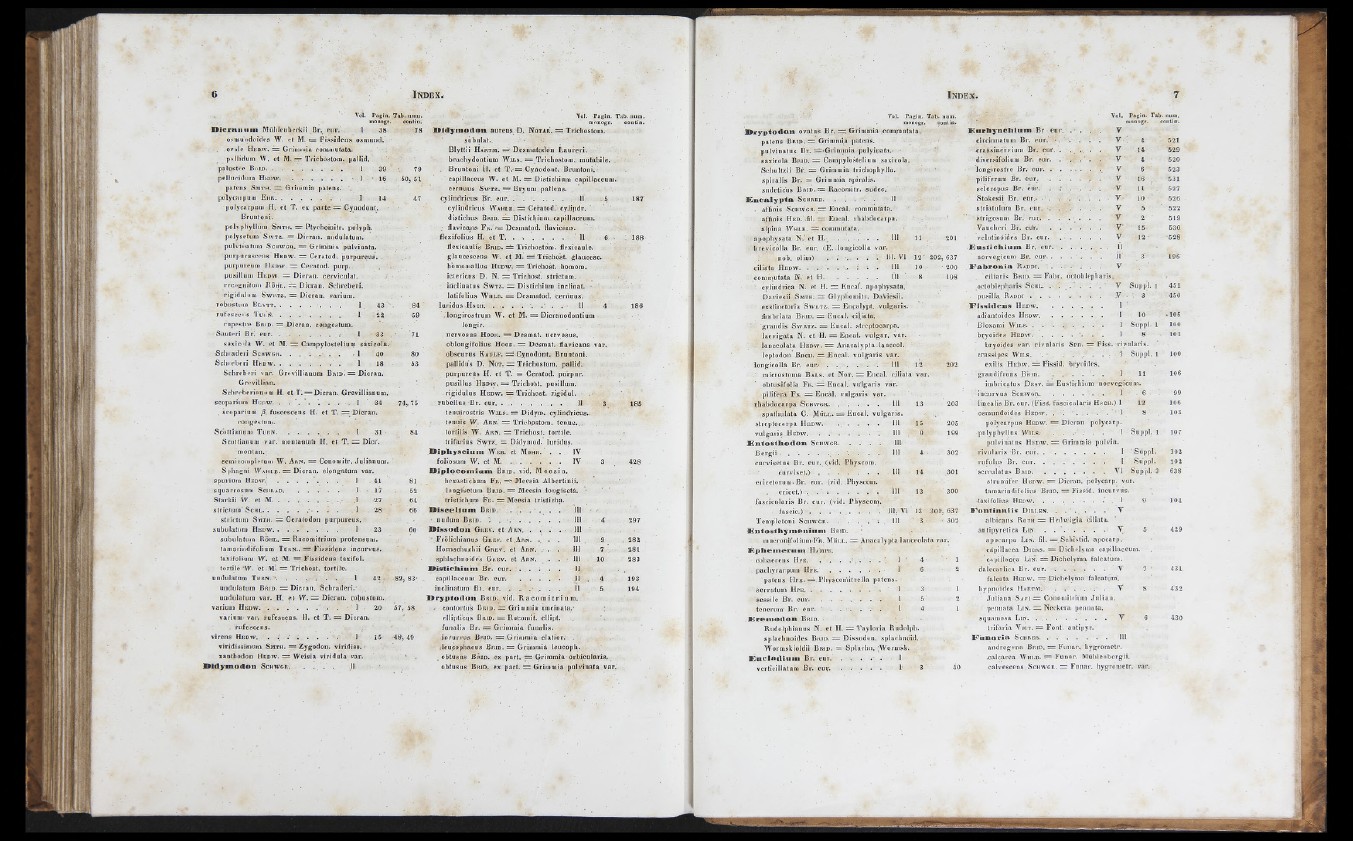 6
INDEX.
Vol. Pagin. Tab. num.
monogr. contin.
Dicranum Mühlenbeckii Br. eur. I 38 78
osmundoides W. et M. = Fissidens osmund.
ovale Hedw. = Grimmia commutata.
pallidum W. et M. = Trichostom. pallid.
palustre Brid. I 39 79
pellucidum Hedw. I 16 50, 51
patens Smth. = Grimmia patens.
polycarpum Ehr. I 14 47
polycarpum H. et T. ex parte = Cynodont.
Bruntoni.
polyphyllum Smth. = Ptychomitr. polyph.
pulvinatum Schwgr. = Grimmia pulvinata.
purpurascens Hedw. = Ceratod. purpureus.
purpureum Hedw. = Ceratod. purp.
pusillum Hedw. = Dicran. cerviculat.
rigidulum Swrtz. = Dicran. varium.
robustum Blytt. I 43 84
rufescens Turn. I 22 59
rupestre Brid. = Dicran. congestum.
Sauteri Br. eur. I 33 71
saxicola W. et M. = Campylostelium saxicola.
Schraderi Schwgr. I 40 80
Schreberi Hedw. I 18 53
Schreberi var. Grevillianum Brid. = Dicran.
Grevillian.
Schreberianum H. et T. = Dicran. Grevillianum.
scoparium Hedw. I 36 74, 75
scoparium β fuscescens H. et T. = Dicran.
congestum.
Scottianum Turn. I 31
Scottianum var. montanum H. et T. = Dicr.
montan.
Sphagni Wahlb. = Dicran. elongatum var.
spurium Hedw. I 41 81
squarrosum Schrad. I 17 52
Starkii W. et M. I 27 64
strictum Schl. I 28 66
strictum Smth. = Ceratodon purpureus.
subulatum Hedw. I 23 60
subulatum Röhl. = Racomitrium protensum.
tamarindifolium Turn. = Fissidens incurvus.
taxifolium W. et M. = Fissidens taxifol.
tortile W. et M. = Trichost. tortile.
undulatum Turn. I 42 82, 83
undulatum Brid. = Dicran. Schraderi.
undulatum var. H. et W. = Dicran. robustum.
varium Hedw. I 20 57, 58
varium var. rufescens. H. et T. = Dicran.
rufescens.
virens Hedw. I 15 48, 49
viridissimum Smth. = Zygodon. viridiss.
xanthodon Hedw. = Weisia viridula var.
Didymodon Schwgr. II
Vol. Pagin. Tab. num.
monogr. contin.
Didymodon nutens D. Notar. = Trichostom.
subulat.
Blyttii Hartm. = Desmatodon Laureri.
brachydontium Wils. = Trichostom. mutabile.
Bruntoni H. et T. = Cynodont. Bruntoni.
capillaceus W. et M. = Distichium capillaceum.
cernuus Swrtz. = Bryum pallens.
cylindricus Br. eur. II 5 187
cylindricus Wahlb. = Ceratod. cylindr.
distichus Brid. = Distichium capillaceum.
flavicans Fr. = Desmatod. flavicans.
flexifolius H. et T. II 6 188
flexicaulis Brid. = Trichostom. flexicaule.
glaucescens W. et M. = Trichost. glaucesc.
homomallus Hedw. = Trichost. homom.
ictericus D. N. = Trichost. strictum.
inclinatus Swrtz. = Distichium inclinat.
latifolius Whlb. = Desmatod. cernuus.
luridus Hsch. II 4 186
longirostrum W. et M. = Dicranodontium
longir.
nervosus Hook. = Desmat. nervosus.
oblongifolius Hook. = Desmat. flavicans var.
obscurus Kaulf. = Cynodont. Bruntoni.
pallidus D. Not. = Trichostom. pallid.
purpureus H. et T. = Ceratod. purpur.
pusillus Hedw. = Trichost. pusillum.
rigidulus Hedw. = Trichost. rigidul.
rubellus Br. eur. II 3 185
tenuirostris Wils. = Didym. cylindricus.
tenuis W. Arn. = Trichostom. tenue.
tortilis W. Arn. = Trichost. tortile.
trifarius Swtz. = Didymod. luridus.
Diphyscium Web. et Mohr. IV
foliosum W. et M. IV 3 428
Diplocomium Brid. vid. Meesia.
hexastichum Fr. = Meesia Albertinii.
longisetum Brid. = Meesia longiseta.
tristichum Fr. = Meesia tristicha.
Discelium Brid. III
nudum Brid. III 4 297
Dissodon Grev. et Arn. III
Frölichianus Grev. et Arn. III 9 282
Hornschuchii Grev. et Arn. III 7 281
splachnoides Grev. et Arn. III 10 283
Distichium Br. eur. II
capillaceum Br. eur. II 4 193
inclinatum Br. eur. II 5 194
Dryptodon Brid. vid. Racomitrium.
contortus Brid. = Grimmia uncinata.
ellipticus Brid. = Racomit. ellipt.
funalis Br. = Grimmia funalis.
incurvus Brid. = Grimmia elatior.
leucophaeus Brid. = Grimmia leucoph.
obtusus Brid. ex part. = Grimmia orbicularis.
obtusus Brid. ex part. = Grimmia pulvinata var.
INDEX.
7
Vol. Pagin. Tab. num.
monogr. contin.
Dryptodon ovatus Br. = Grimmia commutata.
patens Brid. = Grimmia patens.
pulvinatus Br. = Grimmia pulvinata.
saxicola Brid. = Campylostelium saxicola.
Schultzii Br. = Grimmia trichophylla.
spiralis Br. = Grimmia spiralis.
sudeticus Brid. = Racomitr. sudet.
Encalypta Schreb. III
affinis Schwgr. = Encal. commutata.
affinis Hed. fil. = Encal. rhabdocarpa.
alpina Whlb. = commutata.
apophysata N. et H. III 11 201
brevicolla Br. eur. (E. longicolla var.
nob. olim) III. VI 12 202, 637
ciliata Hedw. III 10 200
commutata N. et H. III 8 198
cylindrica N. et H. = Encal. apophysata.
Daviesii Smth. = Glyphomitr. Daviesii.
extinctoria Swartz. = Encalypt. vulgaris.
fimbriata Brid. = Encal. ciliata.
grandis Swartz. = Encal. streptocarpa.
laevigata N. et H. = Encal. vulgar. var.
lanceolata Hedw. = Anacalypta lanceol.
leptodon Bruch. = Encal. vulgaris var.
longicolla Br. eur. III 12 202
microstoma Bals. et Not. = Encal. ciliata var.
obtusifolia Fk. = Encal. vulgaris var.
pilifera Fk. = Encal. vulgaris var.
rhabdocarpa Schwgr. III 13 203
spathulata C. Müll. = Encal. vulgaris.
streptocarpa Hedw. III 15 205
vulgaris Hedw. III 9 199
Entosthodon Schwgr. III
Bergii III 4 302
curvisetus Br. eur. (vid. Physcom.
curviset.) III 14 301
ericetorum Br. eur. (vid. Physcom.
ericet.) III 13 300
fascicularis Br. eur. (vid. Physcom.
fascic.) III, VI 12 302, 637
Templetoni Schwgr. III 3 302
Entosthymenium Brid.
mucronifolium C. Müll. = Anacalypta lanceolata var.
Ephemerum Hampe.
cohaerens Hpe. I 4 1
pachycarpum Hpe. I 6 2
patens Hpe. = Physcomitrella patens.
serratum Hpe. I 3 1
sessile Br. eur. I 5 2
tenerum Br. eur. I 4 1
Eremodon Brid.
Rudolphianus N. et H. = Tayloria Rudolph.
splachnoides Brid. = Dissodon. splachnoid.
Wormskioldii Brid. = Splachn. Wormsk.
Eucladium Br. eur. I
verticillatum Br. eur. I 3 40
Vol. Pagin. Tab. num.
monogr. contin.
Eurhynchium Br. eur. V
circinnatum Br. eur. V 5 521
crassinervium Br. eur. V 14 529
diversifolium Br. eur. V 4 520
longirostre Br. eur. V 6 523
piliferum Br. eur. V 16 531
scleropus Br. eur. V 11 527
Stokesii Br. eur. V 10 526
striatulum Br. eur. V 5 522
strigosum Br. eur. V 2 519
Vaucheri Br. eur. V 15 530
velutinoides Br. eur. V 12 528
Eustichium Br. eur. II
norvegicum Br. eur. II 3 196
Fabronia Raddi. V
ciliaris Brid. = Fabr. octoblepharis.
octoblepharis Schl. V Suppl. 1 451
pusilla Raddi V 3 450
Fissidens Hedw. I
adiantoides Hedw. I 10 105
Bloxami Wils. I Suppl. 1 100
bryoides Hedw. I 8 101
bryoides var. rivularis Spr. = Fiss. rivularis.
crassipes Wils. I Suppl. 1 100
exilis Hedw. = Fissid. bryoides.
grandifrons Brid. I 11 106
imbricatus Desv. = Eustichium norvegicum.
incurvus Schwgr. I 6 99
linealis Br. eur. (Fiss. fascicularis Hsch.) I 12 106
osmundoides Hedw. I 8 103
polycarpus Hedw. = Dicran. polycarp.
polyphyllus Wils. I Suppl. 1 107
pulvinatus Hedw. = Grimmia pulvin.
rivularis Br. eur. I Suppl. 102
rufulus Br. eur. I Suppl. 102
serrulatus Brid. VI Suppl. 3 638
strumifer Hedw. = Dicran. polycarp. var.
tamarindifolius Brid. = Fissid. incurvus.
taxifolius Hedw. I 9 104
Fontinalis Dillen. V
albicans Roth = Hedwigia ciliata.
antipyretica Lin. V 5 429
apocarpa Lin. fil. = Schistid. apocarp.
capillacea Dicks. = Dichelyma capillaceum.
capillacea Lin. = Dichelyma falcatum.
dalecarlica Br. eur. V 7 431
falcata Hedw. = Dichelyma falcatum.
hypnoides Hartm. V 8 432
Juliana Savi = Conomitrium Julian.
pennata Lin. = Neckera pennata.
squamosa Lin. V 6 430
Funaria Schreb. III
androgyna Brid. = Funar. hygrometr.
calcarea Whlb. = Funar. Mühlenbergii.
calvescens Schwgr. = Funar. hygrometr. var.